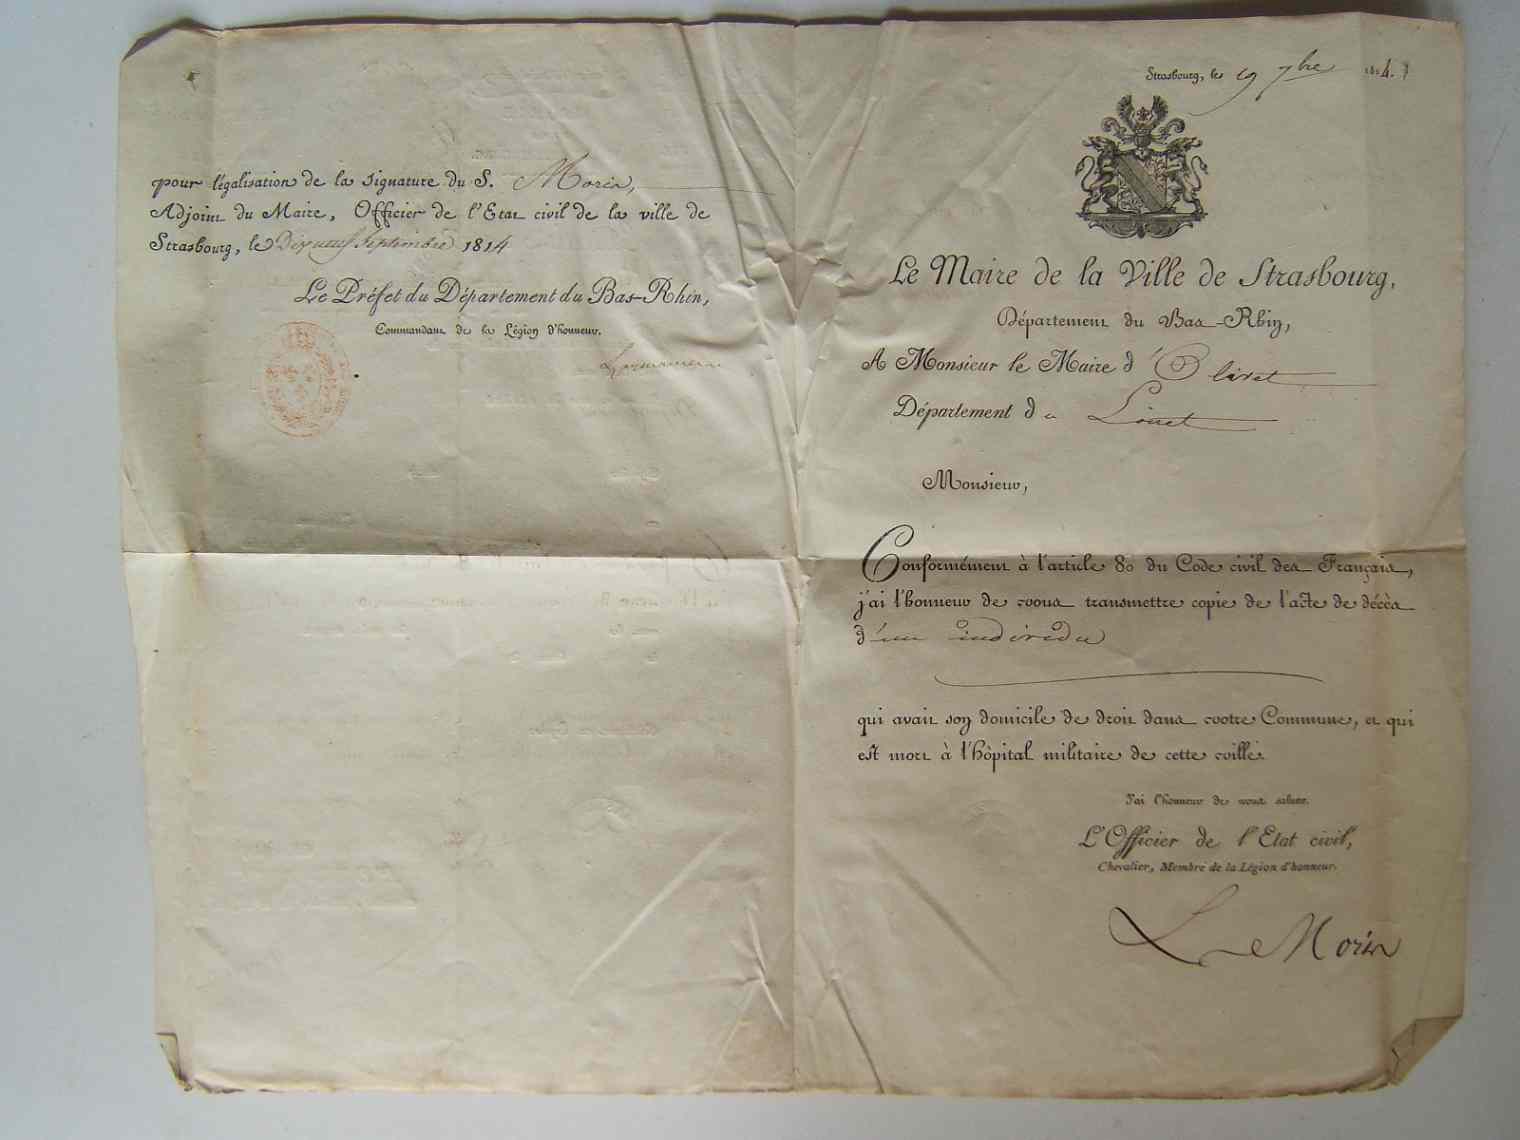 pour légalisation de la signature du S. Morin,
Adjoint du Maire, Officier de l'Etat civil de la ville de
Strasbourg, le Dix neuf Septembre 1814
Le Préfet du Département du Bas-Rhin,
Commandant de la Légion d'honneur.
Strasbourg, le 19 7bre 1814.
Le Maire de la Ville de Strasbourg,
Département du Bas-Rhin,
A Monsieur le Maire d'Olivet
Département du Loiret
Monsieur,
Conformément à l'article 80 du Code civil des Français,
j'ai l'honneur de vous transmettre copie de l'acte de décès
d'un individu
qui avait son domicile de droit dans votre Commune, et qui
est mort à l'hôpital militaire de cette ville.
J'ai l'honneur de vous saluer.
L'Officier de l'Etat civil,
Chevalier, Membre de la Légion d'honneur.
Morin